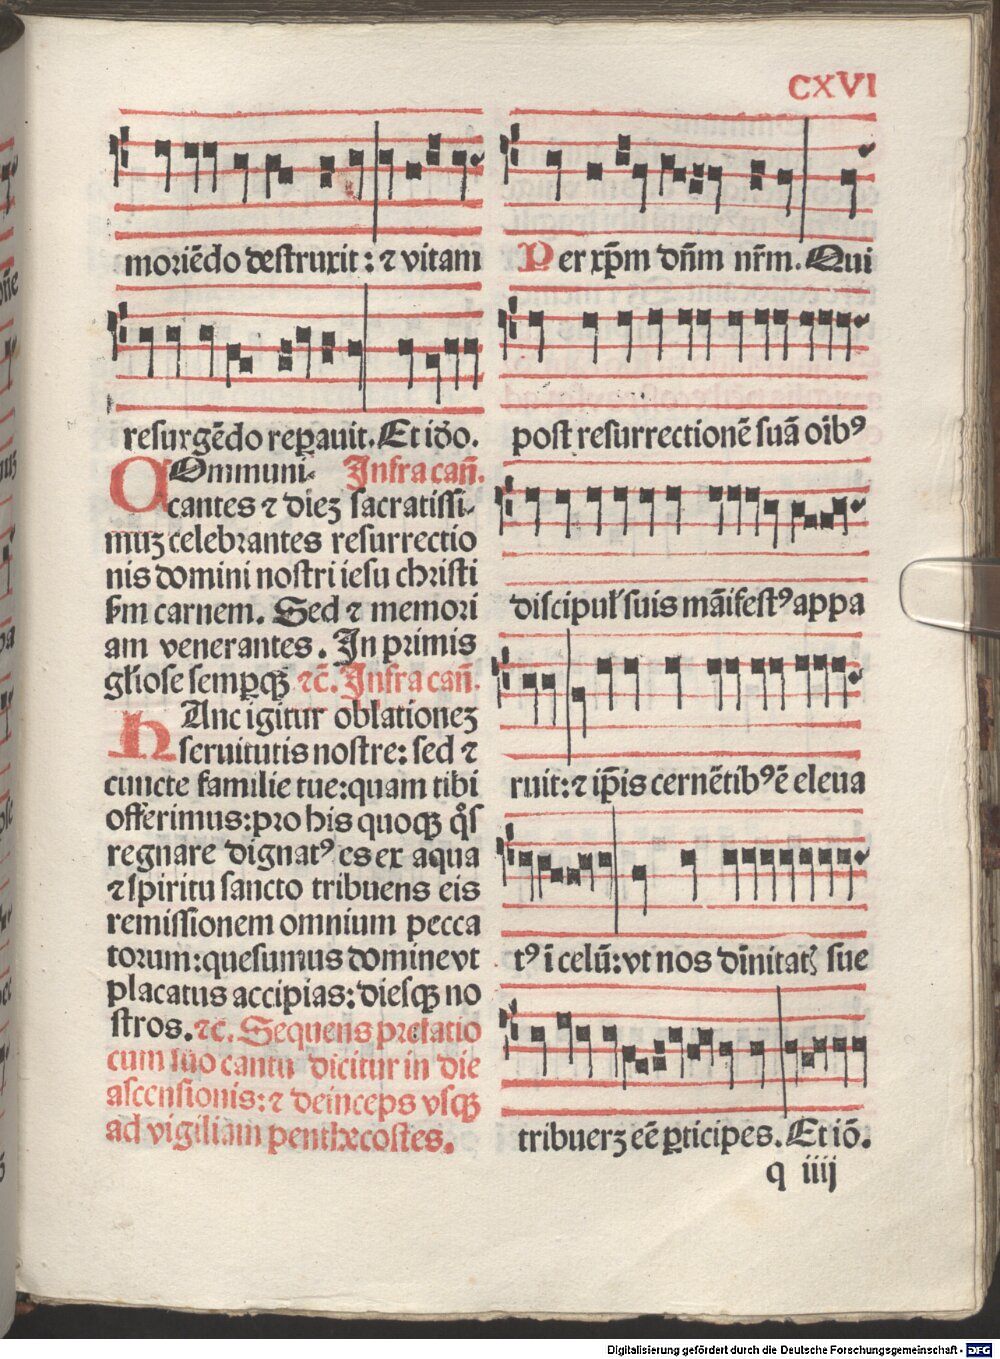 CXVI
moriẽdo destruxit: ⁊ vitam
resurgẽdo reꝑauit. Et iđo.
Infra cañ.
COmmuni-
cantes ⁊ dieꝫ sacratissi-
muꝫ celebrantes resurrectio
nis domini nostri iesu christi
ẜm carnem. Sed ⁊ memori
am venerantes. In primis
gl'iose semꝑqꝫ ⁊c̃. Infra cañ.
HAnc igitur oblationeꝫ
seruitutis nostre: sed ⁊
cuncte familie tue: quam tibi
offerimus: pro his quoqꝫ q̊s
regnare dignatꝰ es ex aqua
⁊ spiritu sancto tribuens eis
remissionem omnium pecca
torum: quesumus domine vt
placatus accipias: diesqꝫ no
stros. ⁊c̃. Sequens prefatio
cum suo cantu dicitur in die
ascensionis: ⁊ deinceps vsqꝫ
ad vigiliam penthecostes.
Per xp̃m dñm nr̃m. Qui
post resurrectionẽ suã oĩbꝰ
discipul' suis mãifestꝰ appa
ruit: ⁊ ip̃is cernẽtibꝰ ẽ eleua
tꝰ ĩ celũ: vt nos diĩnitatꝭ sue
tribuerꝫ eẽ ꝑticipes. Et iõ.
q iiij
Digitalisierung gefördert durch die Deutsche Forschungsgemeinschaft - DFG